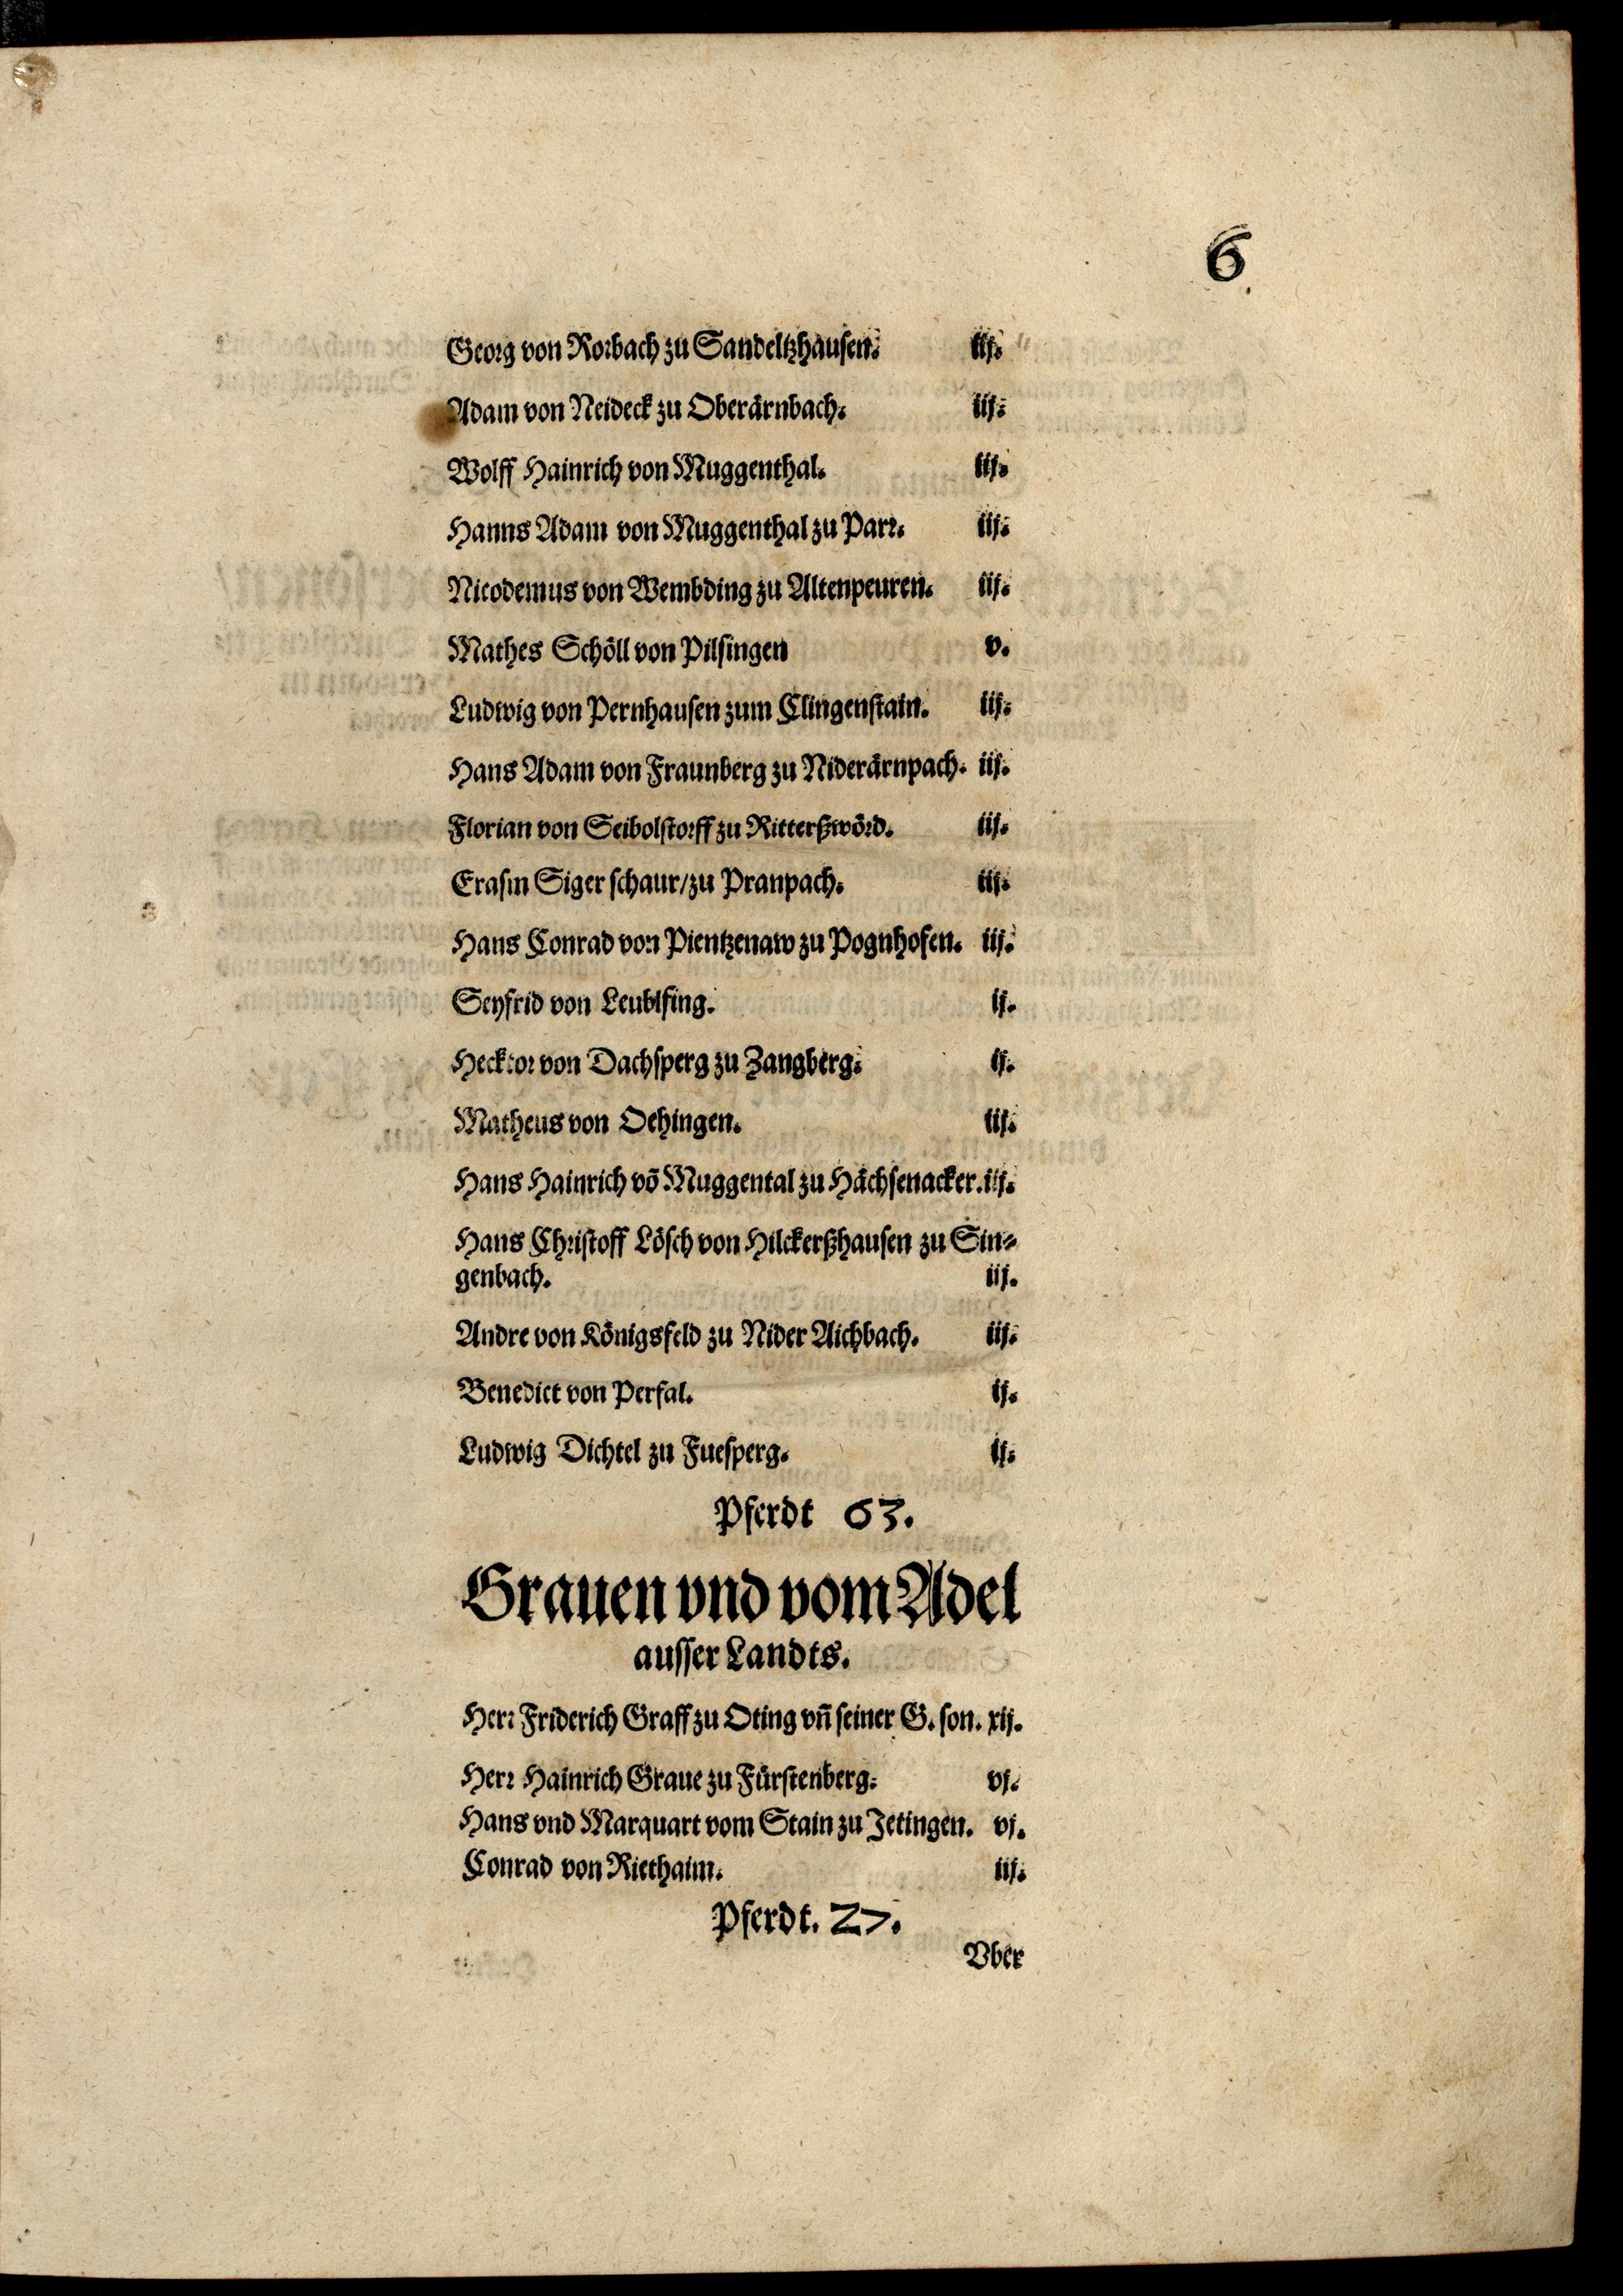 6
Georg von Rorbach zu Sandeltzhausen. iij.
Adam von Neideck zu Oberärnbach. iij.
Wolff Hainrich von Muggenthal. iij.
Hanns Adam von Muggenthal zu Parr. iij.
Nicodemus von Wembding zu Altenpeuren. iij.
Mathes Schöll von Pilsingen v.
Ludwig von Pernhausen zum Clingenstain. iij.
Hans Adam von Fraunberg zu Niderärnpach. iij.
Florian von Seibolstorff zu Ritterßwörd. iij.
Erasm Siger schaur/zu Pranpach. iij.
Hans Conrad von Pientzenaw zu Pognhofen. iij.
Seyfrid von Leublfing. ij.
Hecktor von Dachsperg zu Zangberg. ij.
Matheus von Oehingen. iij.
Hans Hainrich võ Muggental zu Hächsenacker. iij.
Hans Christoff Lösch von Hilckerßhausen zu Sin-
genbach. iij.
Andre von Königsfeld zu Nider Aichbach. iij.
Benedict von Perfal. ij.
Ludwig Dichtel zu Fuesperg. ij.
Pferdt 63.
Grauen vnd vom Adel
ausser Landts.
Herr Friderich Graff zu Oting vñ seiner G. son. xij.
Herr Hainrich Graue zu Fürstenberg. vj.
Hans vnd Marquart vom Stain zu Jetingen. vj.
Conrad von Riethaim. iij.
Pferdt. 27.
Vber